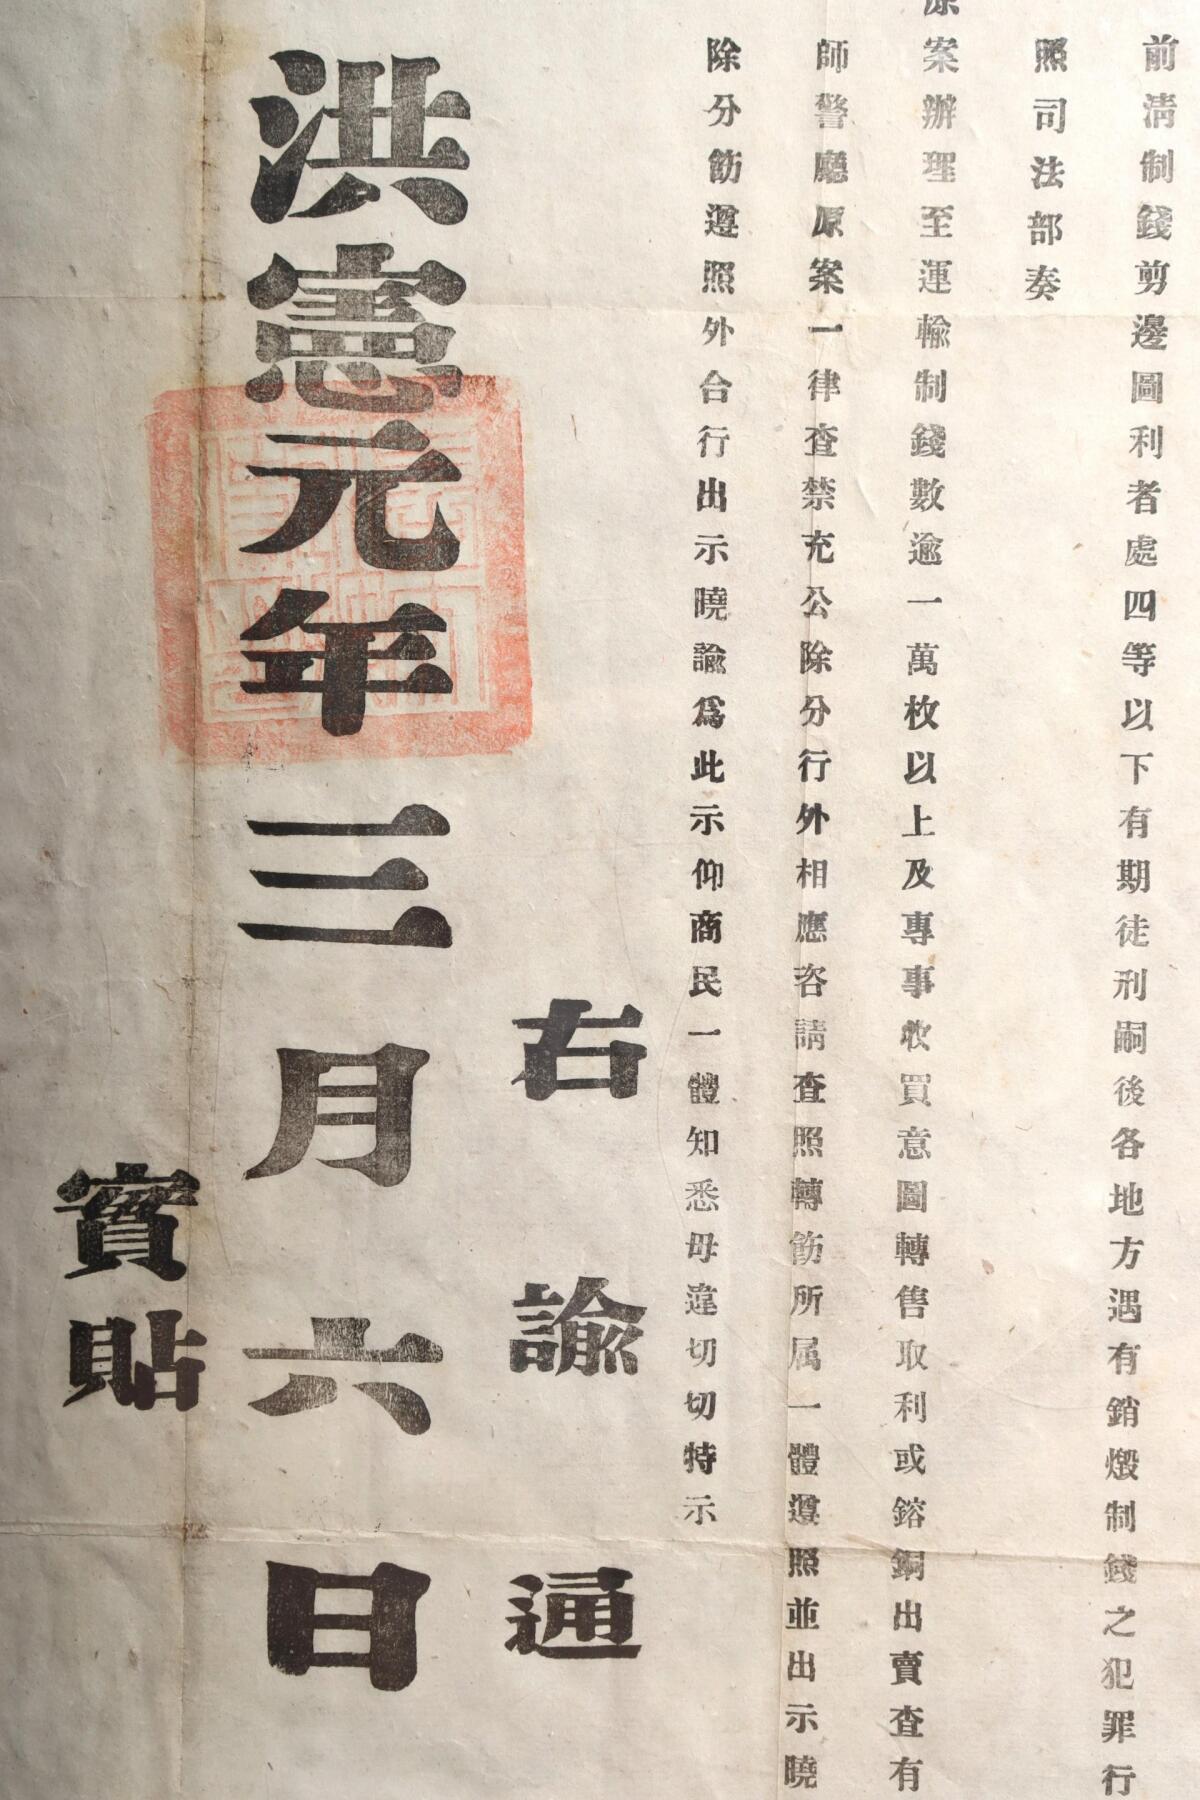 前清制錢剪邊圖利者處四等以下有期徒刑嗣後各地方遇有銷燬制錢之犯罪行
照司法部奏
原案辦理至運輸制錢數逾一萬枚以上及專事收買意圖轉售取利或鎔銅出賣查有
師警廳原案一律查禁充公除分行外相應咨請查照轉飭所属一體遵照並出示曉
除分飭遵照外合行出示曉諭爲此示仰商民一體知悉毋違切切特示
右諭通
洪憲元年三月六日
實貼